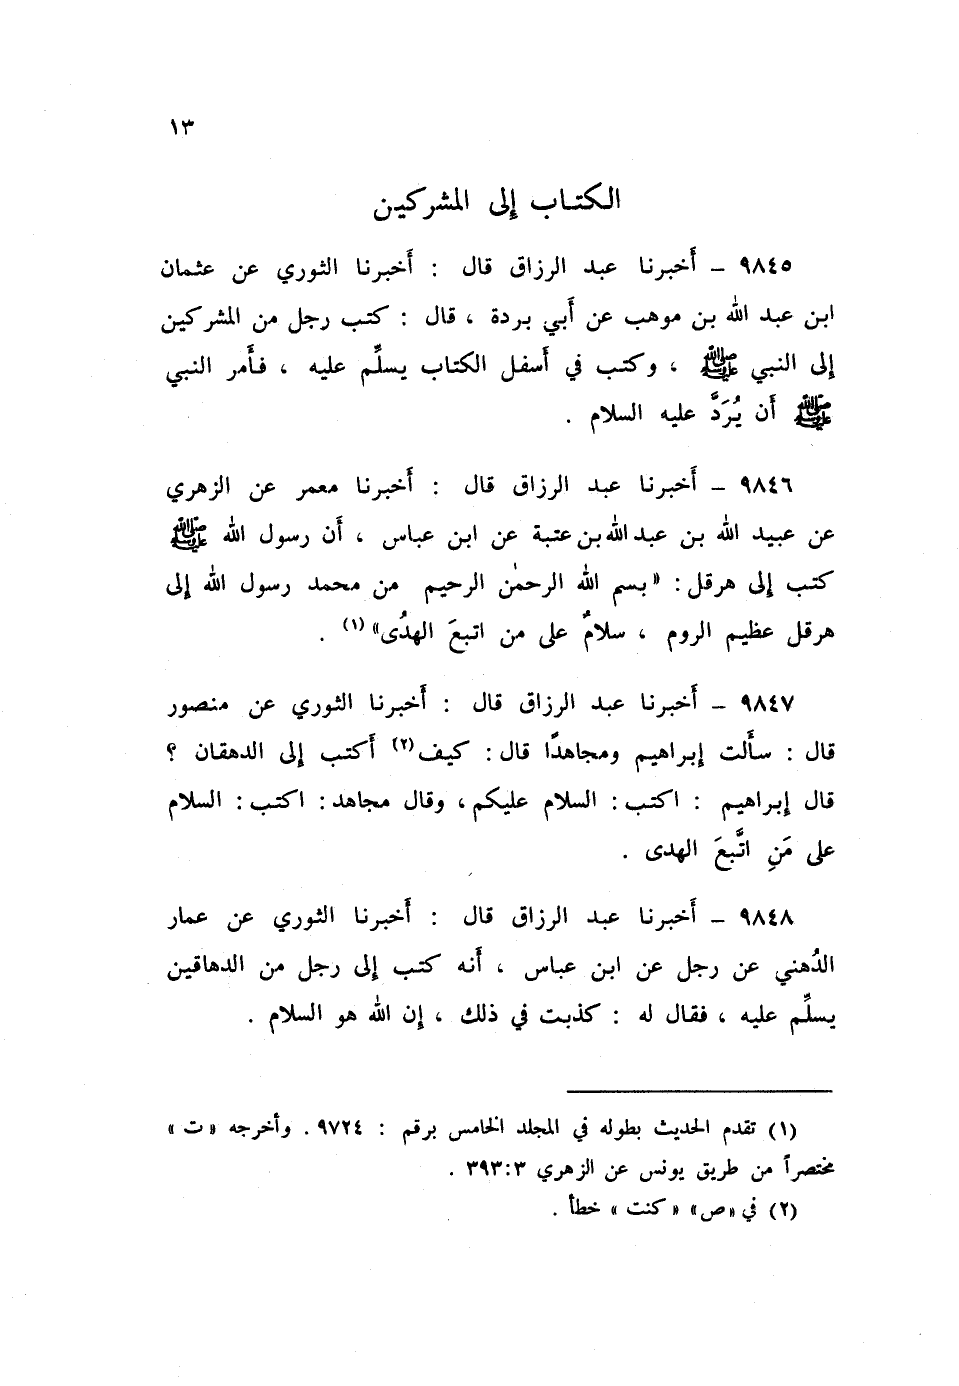 ١٣
الكتاب إلى المشركين
٩٨٤٥ - أخبرنا عبد الرزاق قال : أخبرنا الثوري عن عثمان
ابن عبد الله بن موهب عن أبي بردة ، قال : كتب رجل من المشركين
إلى النبي ﷺ ، وكتب في أسفل الكتاب يسلِّم عليه ، فأمر النبي
ﷺ أن يُرَدَّ عليه السلام .
٩٨٤٦ - أخبرنا عبد الرزاق قال : أخبرنا معمر عن الزهري
عن عبيد الله بن عبد الله بن عتبة عن ابن عباس ، أن رسول الله ﷺ
كتب إلى هرقل : « بسم الله الرحمٰن الرحيم من محمد رسول الله إلى
هرقل عظيم الروم ، سلامٌ على من اتبعَ الهدُى» (١) .
٩٨٤٧ - أخبرنا عبد الرزاق قال : أخبرنا الثوري عن منصور
قال : سألت إبراهيم ومجاهدًا قال : كيف (٢) أكتب إلى الدهقان ؟
قال إبراهيم : اكتب : السلام عليكم ، وقال مجاهد : اكتب : السلام
على مَنِ اتَّبعَ الهدى .
٩٨٤٨ - أخبرنا عبد الرزاق قال : أخبرنا الثوري عن عمار
الدُهني عن رجل عن ابن عباس ، أنه كتب إلى رجل من الدهاقين
يسلِّم عليه ، فقال له : كذبت في ذلك ، إن الله هو السلام .
(١) تقدم الحديث بطوله في المجلد الخامس برقم : ٩٧٢٤ . وأخرجه «ت»
مختصراً من طريق يونس عن الزهري ٣٩٣:٣ .
(٢) في «ص» «كنت» خطأ .